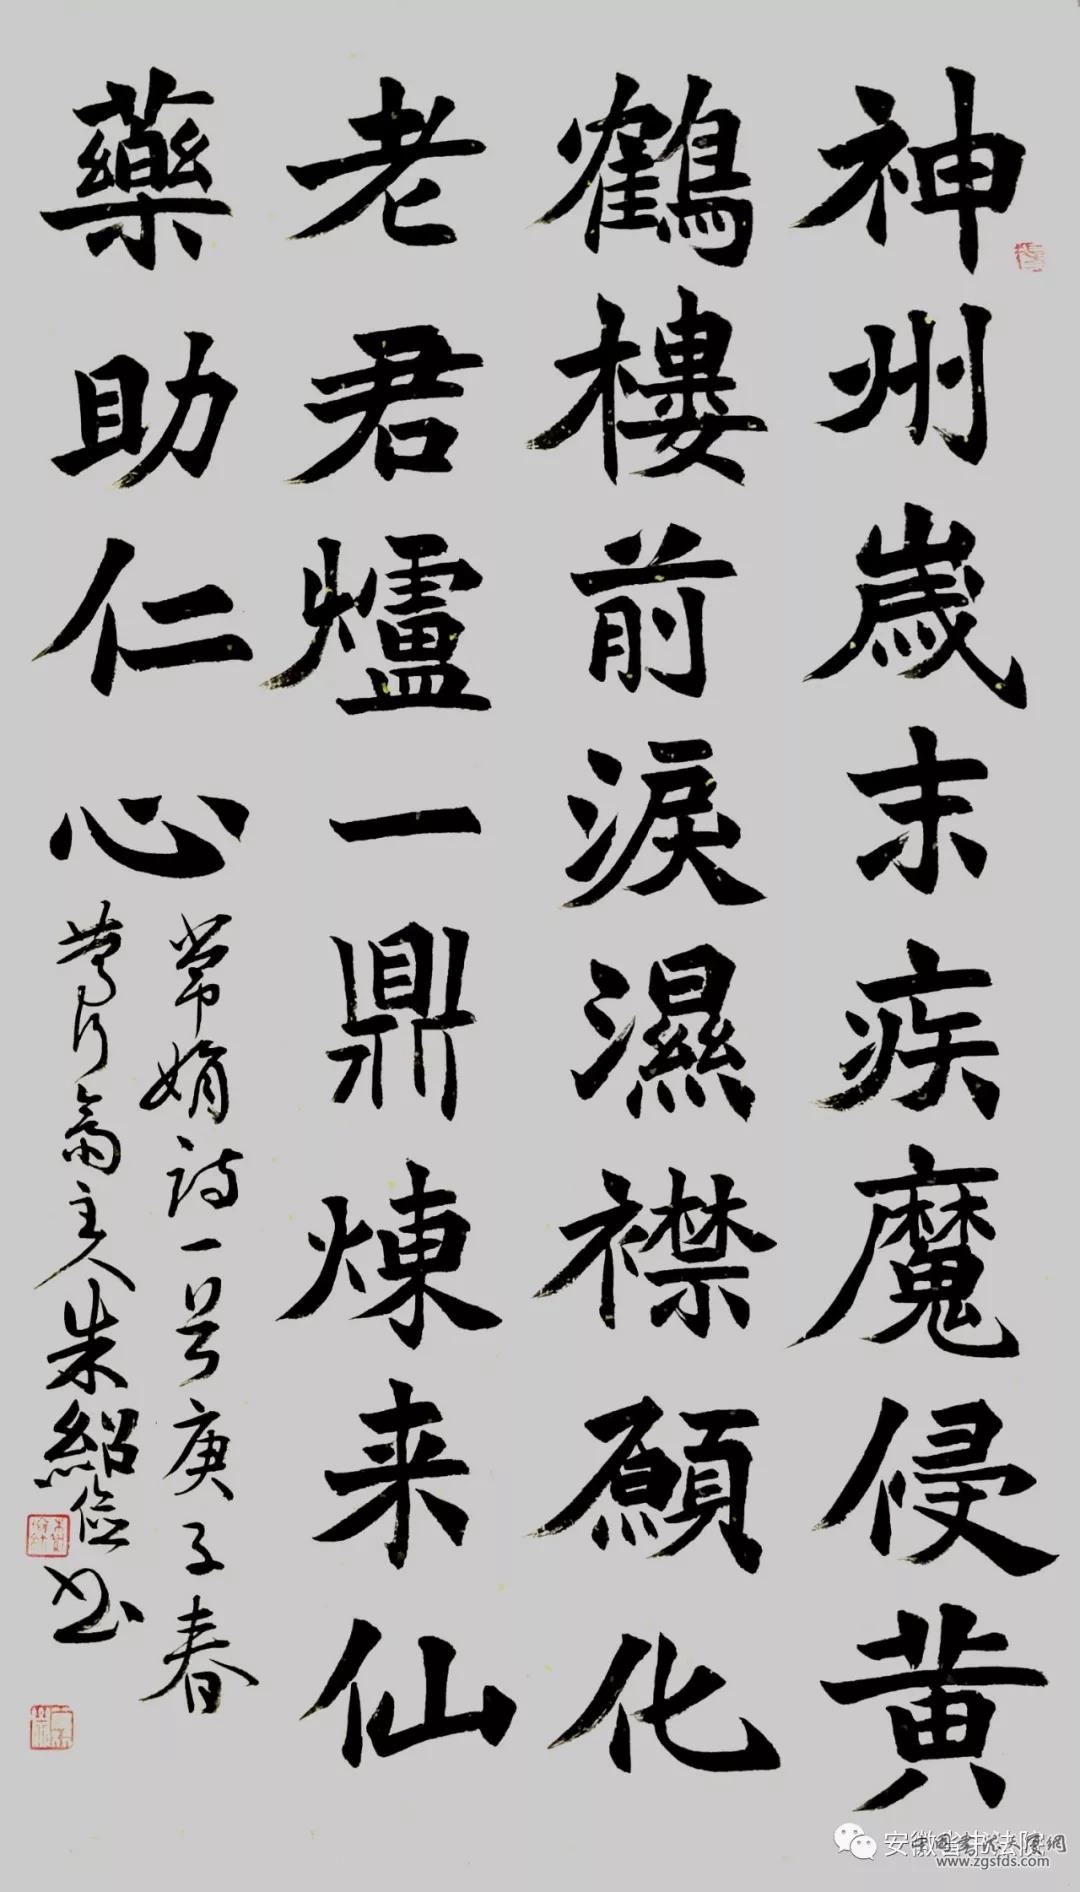 神州歲末疾魔侵黄
鶴樓前淚濕襟願化
老君爐一鼎煉来仙
藥助仁心
常娟詩一首庚子春
主人朱紹俭书
安徽省书法院
www.zgsfds.com